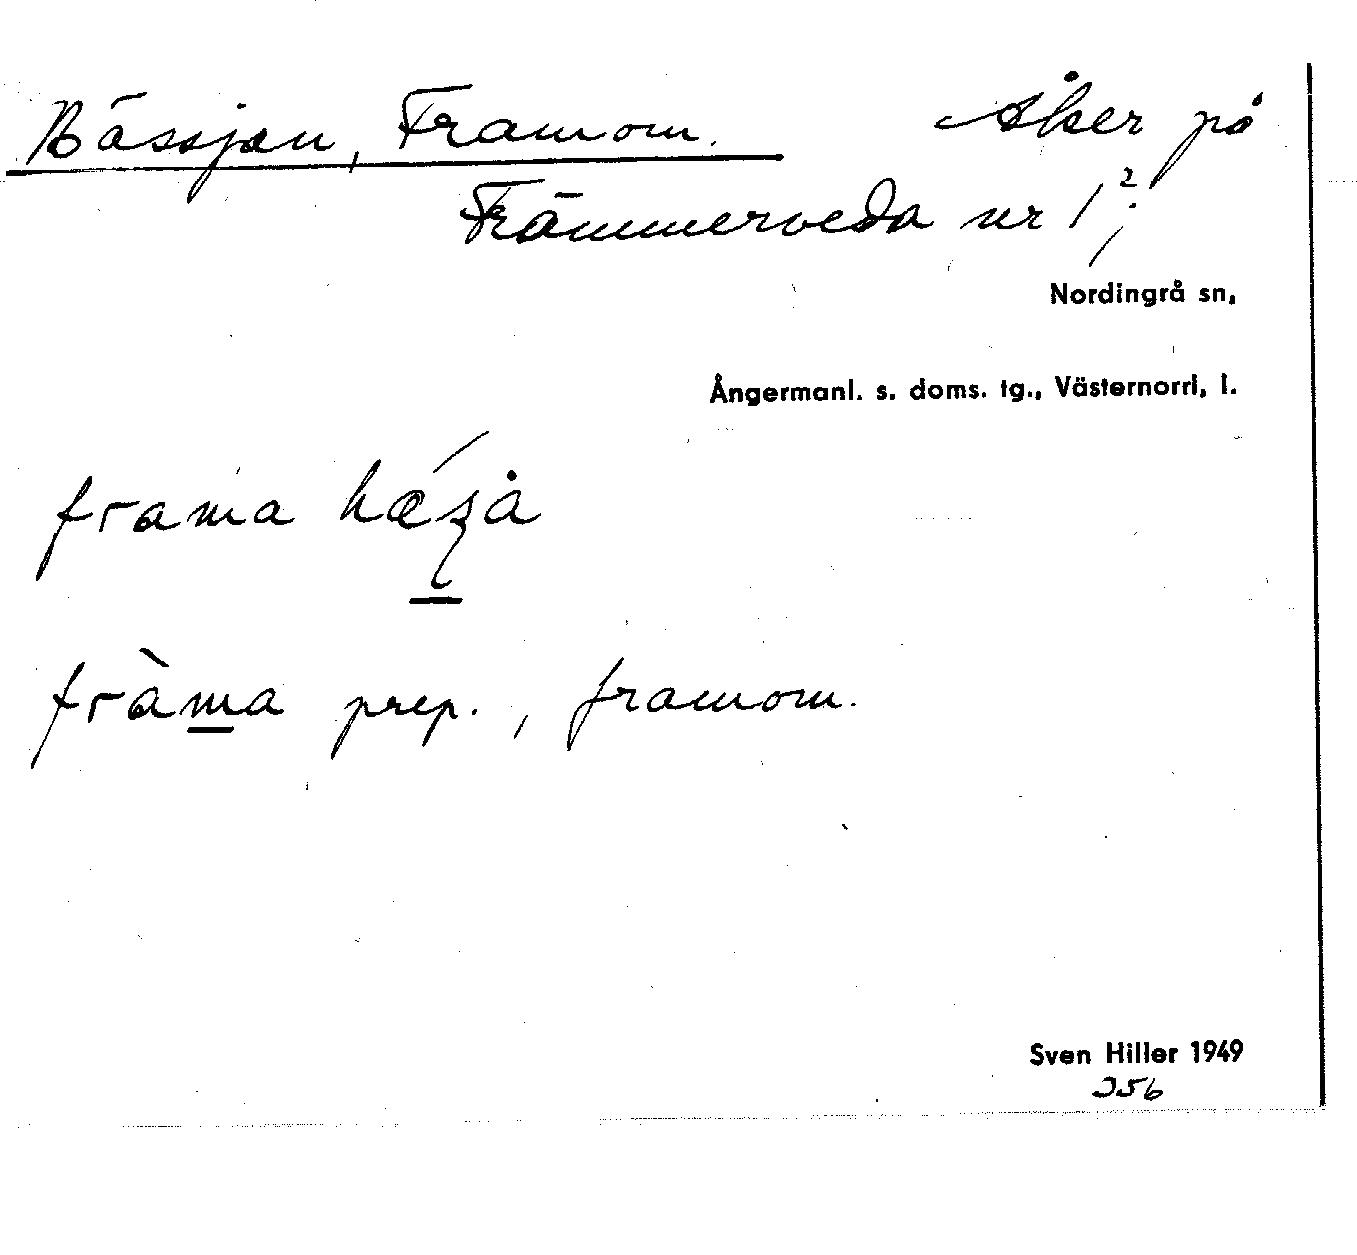 Bässjan, Framom. Åker på
Främmerveda nr 1²;
Nordingrå sn,
Ångermanl. s. doms. tg., Västernorrl, l.
frama
fràma prep., framom.
Sven Hiller 1949